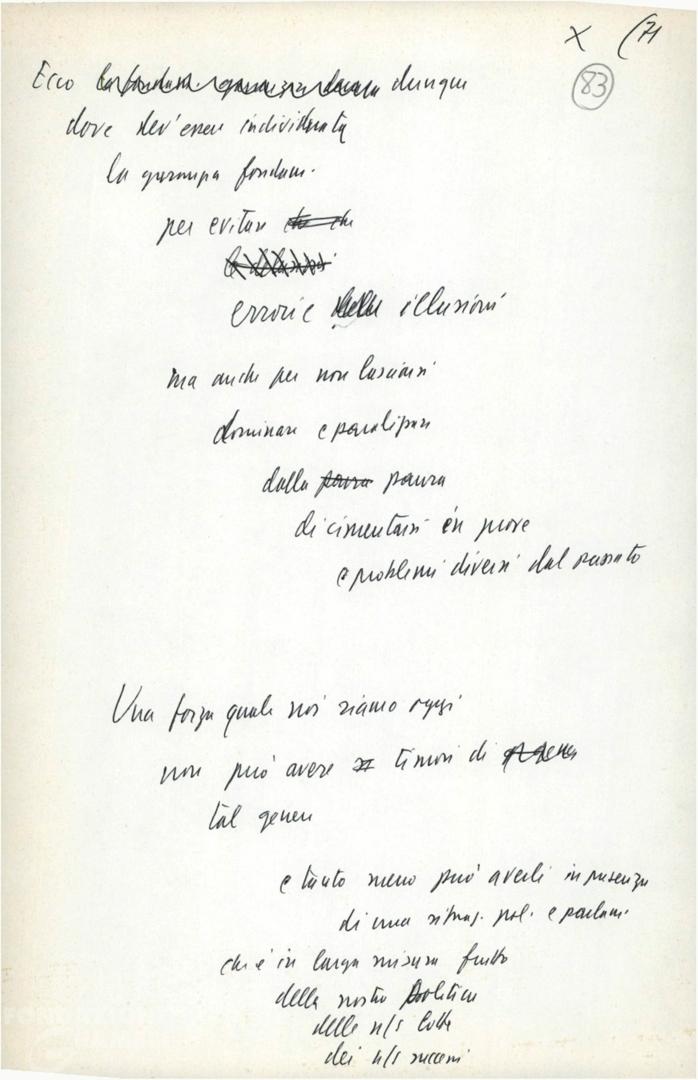 X (71
83
Ecco la fondam. garanzia dunque
dove dev'essere individuata
la garanzia fondam.
per evitare che
errori e delle illusioni
ma anche per non lasciarsi
dominare e paralizzare
dalla paura paura
di cimentarsi in prove
e problemi diversi dal passato
Una forza quale noi siamo oggi
non può avere timori di
tal genere
e tanto meno può averli in presenza
di una situaz. pol. e parlam.
che è in larga misura frutto
della nostra politica
delle n/s lotte
dei n/s successi